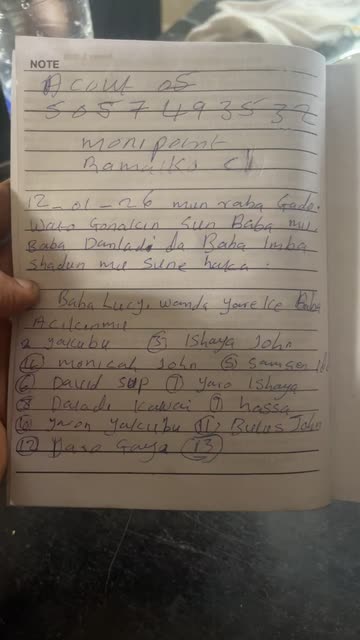 NOTE
Acout 05
5057493532
monipoint
Ramatks c
12-01-26 mun raba Gado
Wato Gonakin Sun Baba mu
Baba Danladi da Baba Imba
Shadun mu Sune haka.
Baba Lucy, wanda yare ke Baba
Acikinmu
2 yakubu ③ Ishaya John
④ monicah John ⑤ Samson
⑥ David sup ⑦ yaro Ishaya
⑧ Daladi ⑨ hassa
⑩ yakubu ⑪ Bulus John
⑫ Gaya ⑬